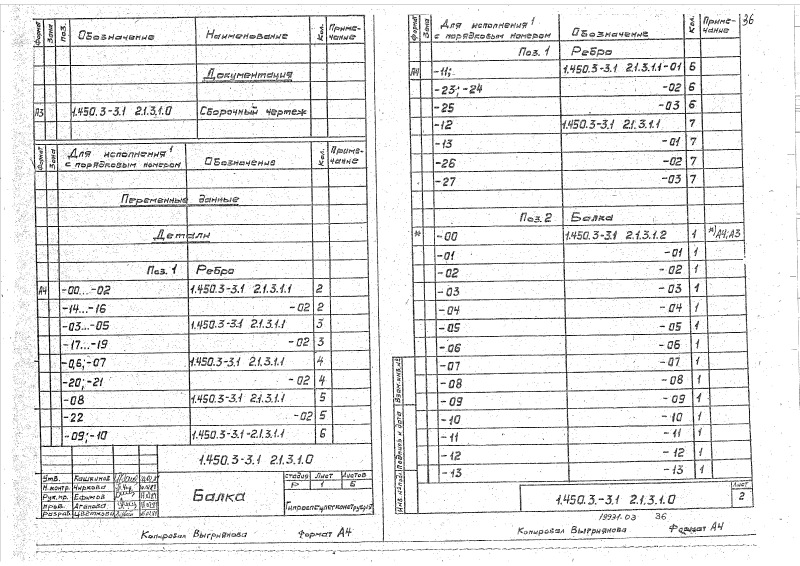 Формат Зона Поз. Обозначение Наименование Кол. Приме-чание
Документация
А3 1.450.3-3.1 2.1.3.1.0 Сборочный чертеж
Формат Зона Для исполнения¹ с порядковым номером Обозначение Кол. Приме-чание
Переменные данные
Детали
Поз. 1 Ребро
А4 -00...-02 1.450.3-3.1 2.1.3.1.1 2
-14...-16 -02 2
-03...-05 1.450.3-3.1 2.1.3.1.1 3
-17...-19 -02 3
-0,6;-07 1.450.3-3.1 2.1.3.1.1 4
-20;-21 -02 4
-08 1.450.3-3.1 2.1.3.1.1 5
-22 -02 5
-09;-10 1.450.3-3.1-2.1.3.1.1 6
1.450.3-3.1 2.1.3.1.0
Утв. Кашкинов
Н.контр. Чиркова
Рук.пр. Ефимов
Пров. Агапова
Разраб. Цветкова
Балка
Стадия Лист Листов
Р 1 6
Гипроспецлегконструкция
Копировал Выгриянова Формат А4
36
Формат Зона Для исполнения¹ с порядковым номером Обозначение Кол. Приме-чание
Поз. 1 Ребро
А4 -11; 1.450.3-3.1 2.1.3.1.1-01 6
-23;-24 -02 6
-25 -03 6
-12 1.450.3-3.1 2.1.3.1.1 7
-13 -01 7
-26 -02 7
-27 -03 7
Поз. 2 Балка
*) -00 1.450.3-3.1 2.1.3.1.2 1 *)А4;А3
-01 -01 1
-02 -02 1
-03 -03 1
-04 -04 1
-05 -05 1
-06 -06 1
-07 -07 1
-08 -08 1
-09 -09 1
-10 -10 1
-11 -11 1
-12 -12 1
-13 -13 1
Инв.№подл. Подпись и дата Взам.инв.№
1.450.3.-3.1 2.1.3.1.0
Лист
2
19931-03 36
Копировал Выгриянова Формат А4